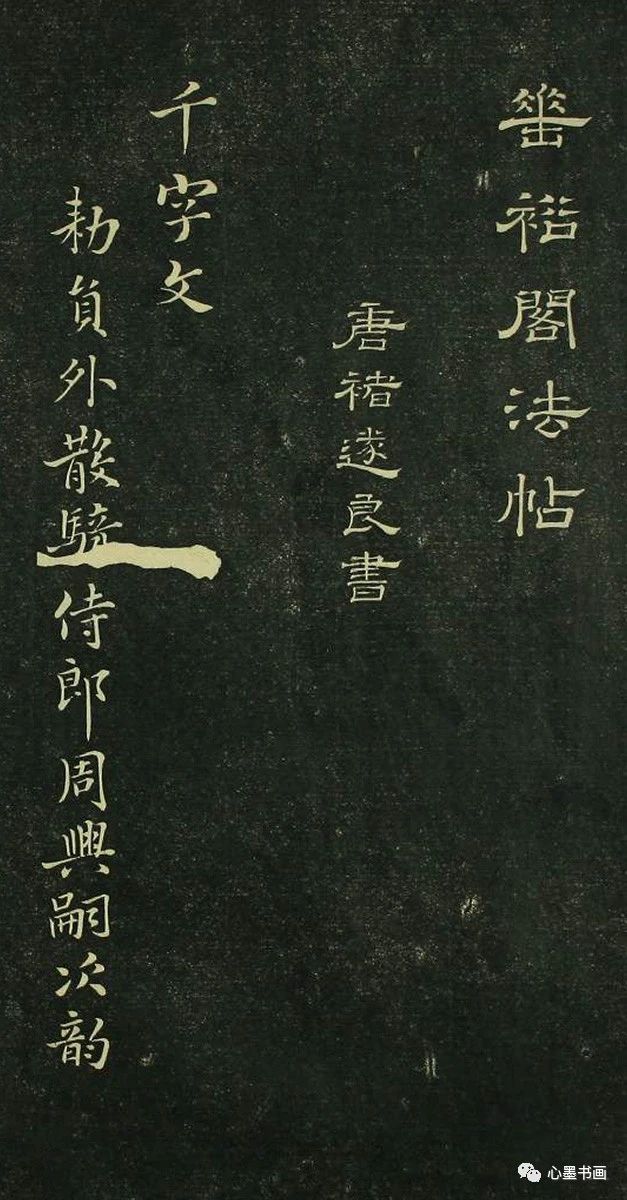 垂裕閣法帖
唐褚遂良書
千字文
勑員外散騎侍郎周興嗣次韵
心墨书画